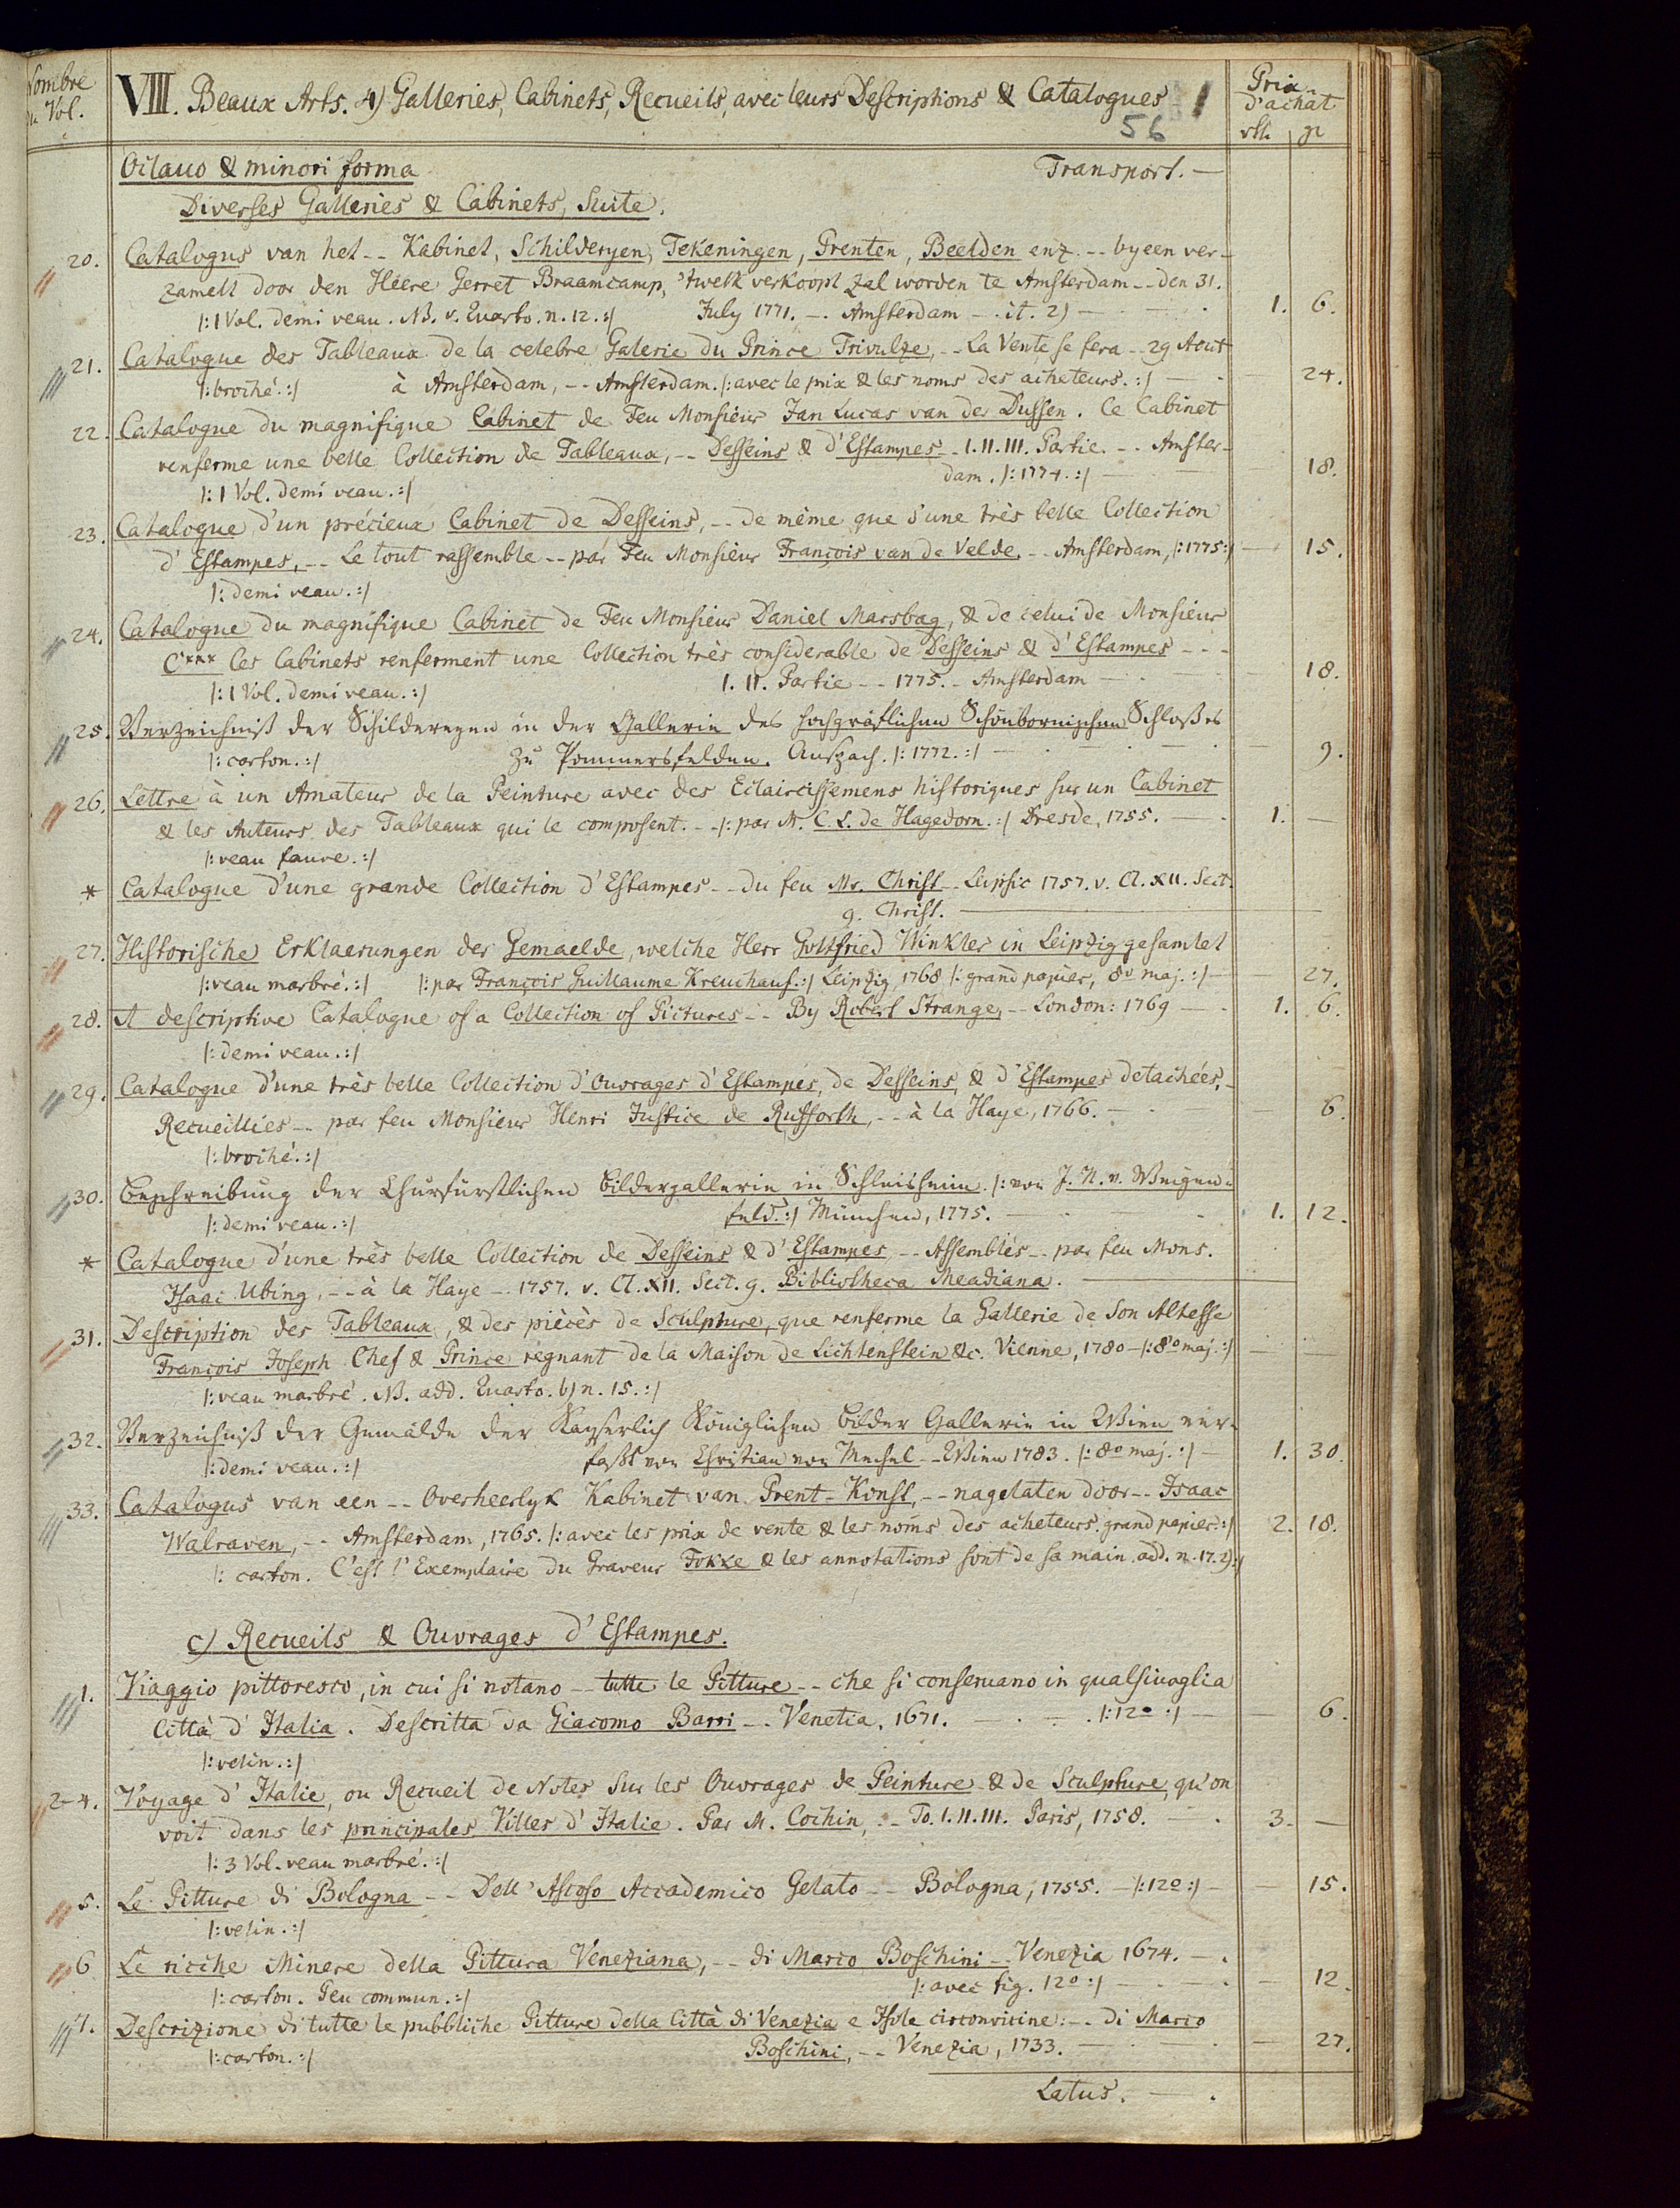 Nombre
du Vol.
VIII. Beaux Arts. 4) Galleries, Cabinets, Recueils, avec leurs Descriptions & Catalogues
1
56
Prix
d'achat
rth gr
Octauo & minori forma
Transport. —
Diverses Galleries & Cabinets, Suite.
20. Catalogus van het -- Kabinet, Schilderyen, Tekeningen, Prenten, Beelden enz. -- byeen ver-
zamelt door den Heere Gerret Braamcamp, 'twelk verkoopt zal worden te Amsterdam -- den 31.
|: 1 Vol. demi veau. NB. v. Quarto. n. 12. :| July 1771. -- Amsterdam -- it. 2) — 1. 6.
21. Catalogue des Tableaux de la celebre Galerie du Prince Trivulze, -- La Vente se fera -- 29 Aout
|: broché. :| à Amsterdam, -- Amsterdam. |: avec le prix & les noms des acheteurs. :| — 24.
22. Catalogue du magnifique Cabinet de Feu Monsieur Jan Lucas van der Dussen. Ce Cabinet
renferme une belle Collection de Tableaux, -- Desseins & d'Estampes -- I. II. III. Partie. -- Amster-
dam. |: 1774. :| — 18.
|: 1 Vol. demi veau. :|
23. Catalogue d'un précieux Cabinet de Desseins, -- de même que d'une très belle Collection
d'Estampes, -- Le tout rassemble -- par Feu Monsieur François van de Velde. -- Amsterdam, |: 1775 :| — 15.
|: demi veau. :|
24. Catalogue du magnifique Cabinet de Feu Monsieur Daniel Marsbag, & de celui de Monsieur
C*** Ces Cabinets renferment une Collection très considerable de Desseins & d'Estampes ---
|: 1 Vol. demi veau. :| I. II. Partie -- 1775. -- Amsterdam — 18.
25. Verzeichniß der Schildereyen in der Gallerie des hochgräflichen Schönbornischen Schloßes
|: carton. :| zu Pommersfelden. Anspach. |: 1772. :| — 9.
26. Lettre à un Amateur de la Peinture avec des Eclaircissemens historiques sur un Cabinet
& les Auteurs des Tableaux qui le composent. -- |: par M. C. L. de Hagedorn. :| Dresde, 1755. — 1. —
|: veau fauve. :|
* Catalogue d'une grande Collection d'Estampes -- du feu Mr. Christ -- Leipsic 1757. v. Cl. XII. Sect.
g. Christ. —
27. Historische Erklaerungen der Gemaelde, welche Herr Gottfried Winkler in Leipzig gesamlet
|: veau marbré. :| |: par François Guillaume Kreuchauf. :| Leipzig, 1768 |: grand papier, 8o maj. :| — 27.
28. A descriptive Catalogue of a Collection of Pictures -- By Robert Strange, -- London: 1769 — 1. 6.
|: demi veau. :|
29. Catalogue d'une très belle Collection d'Ouvrages d'Estampes, de Desseins, & d'Estampes detachées, -
Recueillies -- par feu Monsieur Henri Justice de Rufforth, -- à la Haye, 1766. — 6.
|: broché. :|
30. Beschreibung der Churfürstlichen Bildergallerie in Schleisheim. |: von J. N. v. Weizen-
|: demi veau. :| feld. :| München, 1775. — 1. 12.
* Catalogue d'une très belle Collection de Desseins & d'Estampes -- Assemblés -- par feu Mons.
Isaac Ubing, -- à la Haye -- 1757. v. Cl. XII. Sect. g. Bibliotheca Meadiana. —
31. Description des Tableaux, & des pièces de Sculpture, que renferme la Gallerie de Son Altesse
François Joseph Chef & Prince regnant de la Maison de Lichtenstein &c. Vienne, 1780 - |: 8o maj. :| — —
|: veau marbré. NB. add. Quarto. b) n. 15. :|
32. Verzeichniß der Gemälde der Kayserlich Königlichen Bilder Gallerie in Wien ver-
|: demi veau. :| faßt von Christian von Mechel -- Wien 1783. |: 8o maj. :| — 1. 30.
33. Catalogus van een -- Overheerlyk Kabinet van Prent-Konst, -- nagelaten door -- Isaac
Walraven, -- Amsterdam, 1765. |: avec les prix de vente & les noms des acheteurs. grand papier. :| 2. 18.
|: carton. C'est l'Exemplaire du Graveur Fokke & les annotations sont de sa main. add. n. 17. 2) :|
c) Recueils & Ouvrages d'Estampes.
1. Viaggio pittoresco, in cui si notano -- tutte le Pitture -- che si conseruano in qualsiuoglia
Città d'Italia. Descritta da Giacomo Barri -- Venetia, 1671. |: 12o :| — 6.
|: velin. :|
2-4. Voyage d'Italie, ou Recueil de Notes sur les Ouvrages de Peinture & de Sculpture, qu'on
voit dans les principales Villes d'Italie. Par M. Cochin, -- To. I. II. III. Paris, 1758. 3. —
|: 3 Vol. veau marbré. :|
5. Le Pitture di Bologna -- Dell'Ascoso Accademico Gelato -- Bologna, 1755. - |: 12o :| — 15.
|: velin. :|
6 Le ricche Minere della Pittura Veneziana, -- di Marco Boschini -- Venezia 1674. —
|: carton. Peu commun. :| |: avec fig. 12o :| — 12.
7. Descrizione di tutte le pubbliche Pitture della Città di Venezia e Isole circonvicine: -- di Marco
|: carton. :| Boschini, -- Venezia, 1733. — 27.
Latus. —